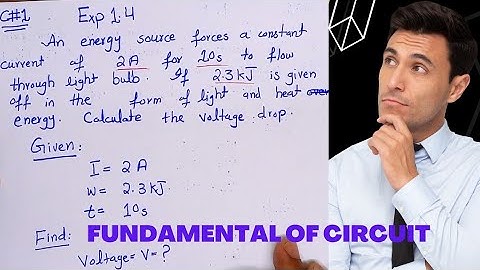 C#1 Exp 1.4
An energy source forces a constant
current of 2A for 10s to flow
through light bulb. If 2.3kJ is given
off in the form of light and heat
energy. Calculate the voltage drop.
Given:
I = 2A
w = 2.3kJ.
t = 10s
Find:
Voltage = V = ?
FUNDAMENTAL OF CIRCUIT